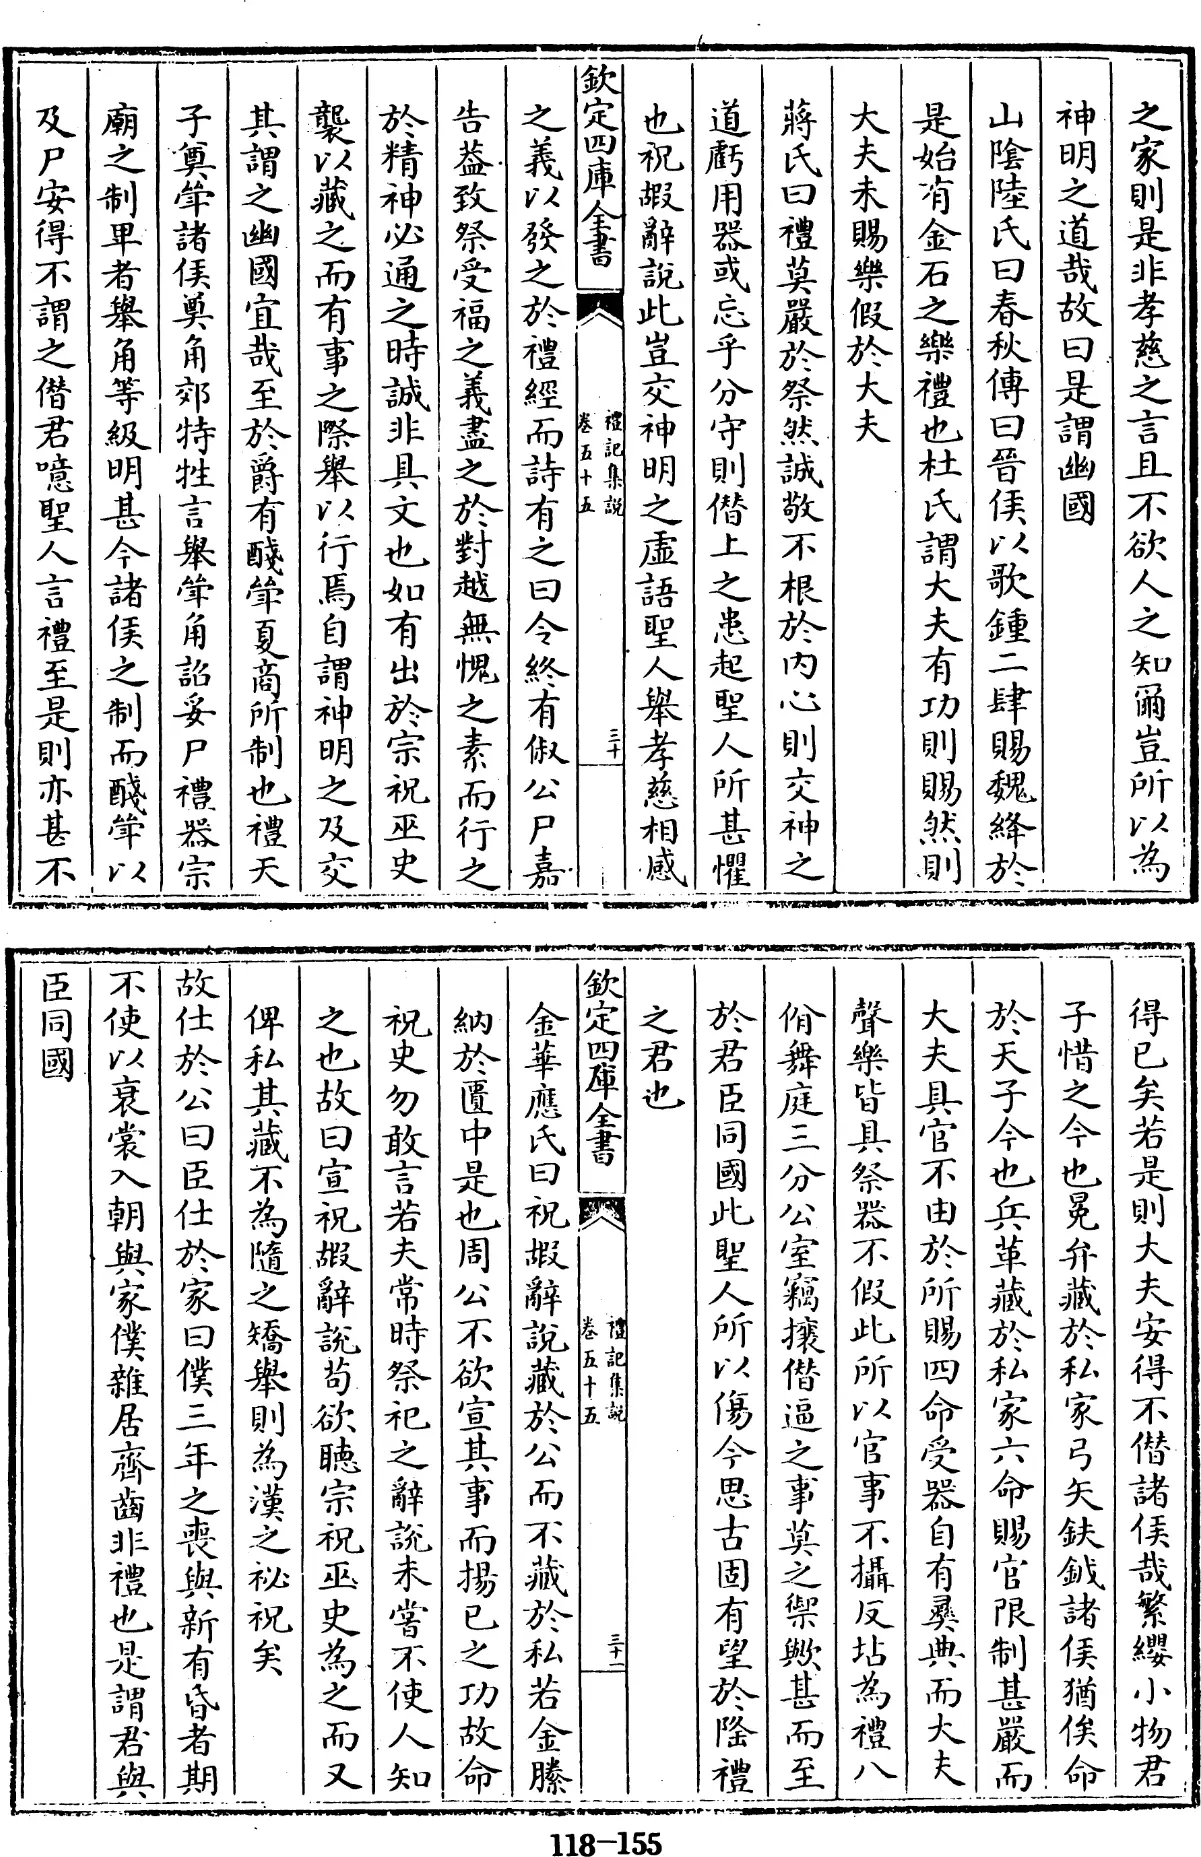 之家則是非孝慈之言且不欲人之知爾豈所以為
神明之道哉故曰是謂幽國
山陰陸氏曰春秋傳曰晉侯以歌鍾二肆賜魏絳於
是始有金石之樂禮也杜氏謂大夫有功則賜然則
大夫未賜樂假於大夫
蔣氏曰禮莫嚴於祭然誠敬不根於内心則交神之
道虧用器或忘乎分守則僭上之患起聖人所甚懼
也祝嘏辭說此豈交神明之虛語聖人舉孝慈相感
欽定四庫全書
禮記集說
卷五十五
三十
之義以發之於禮經而詩有之曰令終有俶公尸嘉
告葢致祭受福之義盡之於對越無愧之素而行之
於精神必通之時誠非具文也如有出於宗祝巫史
襲以藏之而有事之際舉以行焉自謂神明之及交
其謂之幽國宜哉至於爵有醆斝夏商所制也禮天
子奠斝諸侯奠角郊特牲言舉斝角詔妥尸禮器宗
廟之制卑者舉角等級明甚今諸侯之制而醆斝以
及尸安得不謂之僭君噫聖人言禮至是則亦甚不
得已矣若是則大夫安得不僭諸侯哉繁纓小物君
子惜之今也冕弁藏於私家弓矢鈇鉞諸侯猶俟命
於天子今也兵革藏於私家六命賜官限制甚嚴而
大夫具官不由於所賜四命受器自有彞典而大夫
聲樂皆具祭器不假此所以官事不攝反坫為禮八
佾舞庭三分公室竊攘僭逼之事莫之禦歟甚而至
於君臣同國此聖人所以傷今思古固有望於隆禮
之君也
欽定四庫全書
禮記集說
卷五十五
三十一
金華應氏曰祝嘏辭說藏於公而不藏於私若金縢
納於匱中是也周公不欲宣其事而揚已之功故命
祝史勿敢言若夫常時祭祀之辭說未嘗不使人知
之也故曰宣祝嘏辭說苟欲聽宗祝巫史為之而又
俾私其藏不為隨之矯舉則為漢之祕祝矣
故仕於公曰臣仕於家曰僕三年之喪與新有昏者期
不使以衰裳入朝與家僕雜居齊齒非禮也是謂君與
臣同國
118-155